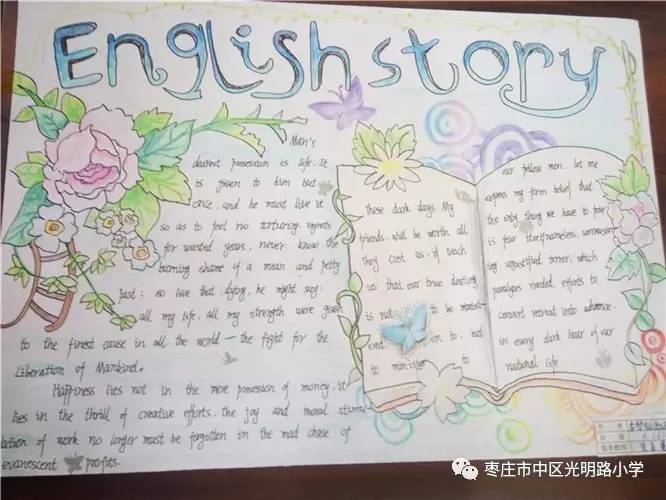 English story
Man's
dearest possession is life. It
is given to him but
once, and he must live it
so as to feel no torturing regrets
for wasted years, never know the
burning shame of a mean and petty
past; so live that, dying, he might say:
all my life, all my strength were given
to the finest cause in all the world — the fight for the
Liberation of Mankind.
Happiness lies not in the mere possession of money. it
lies in the thrill of creative efforts. the joy and moral stimu
lation of work no longer must be forgotten in the mad chase of
evanescent profits.
These dark days. My
friends. will be worth all
they cost us, if teach
us that our true destiny
is not to be
to. but
to to
our fellow men. let me
express my firm belief that
the only thing we have to fear
is fear itself nameless, unreason
ing unjustified terror, which
paralyzes needed efforts to
convert retreat into advance.
in every dark hour of our
national life.
枣庄市中区光明路小学